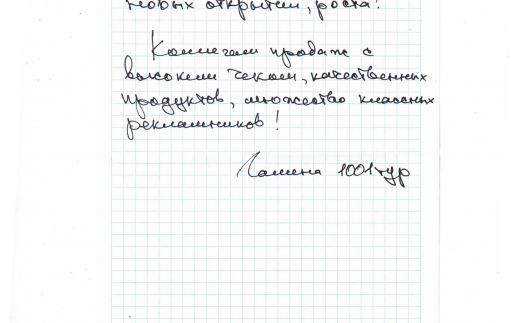 новых открытий, роста!
Коллегам продаж с
высоким чеком, качественных
продуктов, множество классных
рекламников!
1001 тур